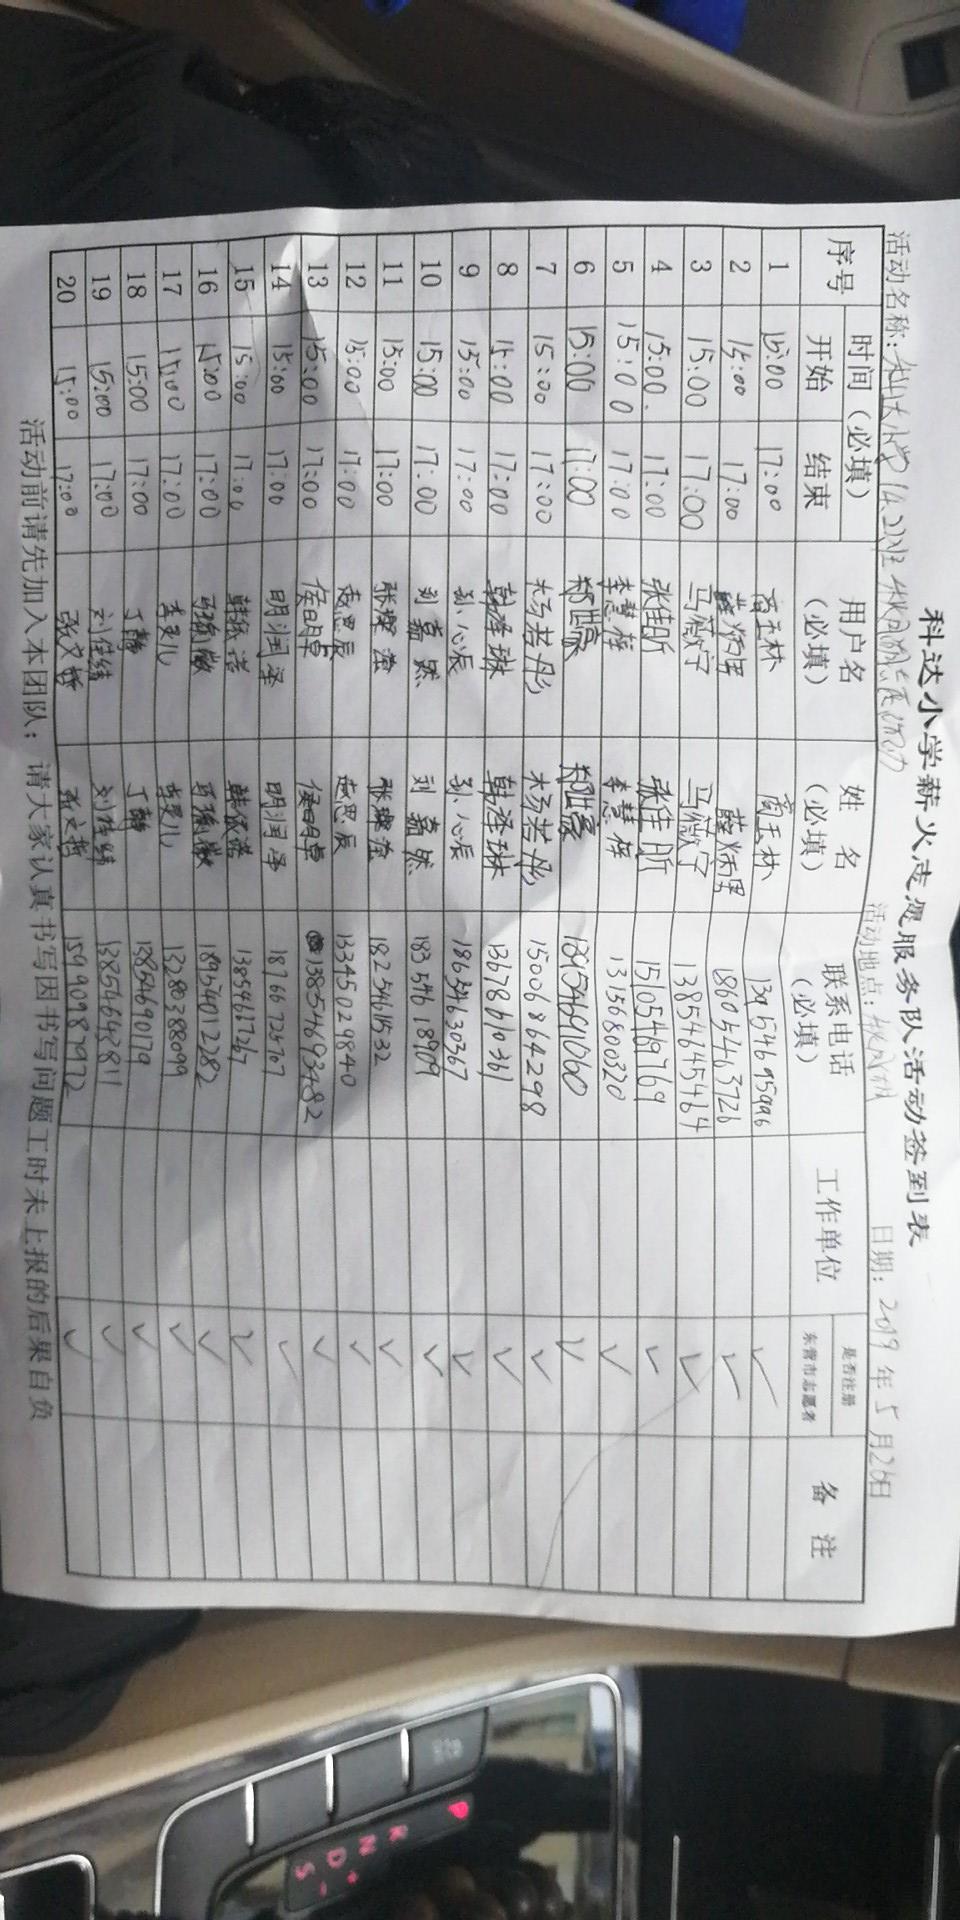 科达小学薪火志愿服务队活动签到表
活动名称: 活动地点: 日期: 2019年5月26日
序号 时间(必填) 开始 结束 用户名(必填) 姓名(必填) 联系电话(必填) 工作单位 是否注册东营市志愿者 备注
1 15:00 17:00 玉林 玉林 ✓
2 15:00 17:00 薛炳男 18605463726 ✓
3 15:00 17:00 马薇字 马薇字 13854645464 ✓
4 15:00. 17:00 张佳昕 张佳昕 15105469769 ✓
5 15:00 17:00 李慧梓 李慧梓 13156800320 ✓
6 15:00 17:00 郑世豪 郑世豪 ✓
7 15:00 17:00 杨若彤 杨若彤 15006864298 ✓
8 15:00 17:00 韩泽琳 韩泽琳 13678610361 ✓
9 15:00 17:00 孙心辰 孙心辰 18654630367 ✓
10 15:00 17:00 刘嘉然 刘嘉然 18354618909 ✓
11 15:00 17:00 张璨滢 张璨滢 18254611532 ✓
12 15:00 17:00 思辰 思辰 13345029840 ✓
13 15:00 17:00 侯明卓 侯明卓 13854693482 ✓
14 15:00 17:00 明润泽 明润泽 18766725707 ✓
15 15:00 17:00 韩依诺 韩依诺 13854617267 ✓
16 15:00 17:00 18954012282 ✓
17 15:00 17:00 李旻儿 李旻儿 13280388099 ✓
18 15:00 17:00 丁翰 丁翰 13854690179 ✓
19 15:00 17:00 刘佳绪 刘佳绪 13854642811 ✓
20 15:00 17:00 张文哲 张文哲 15990982972 ✓
活动前请先加入本团队;请大家认真书写因书写问题工时未上报的后果自负
P
R
N
D
S
+
-